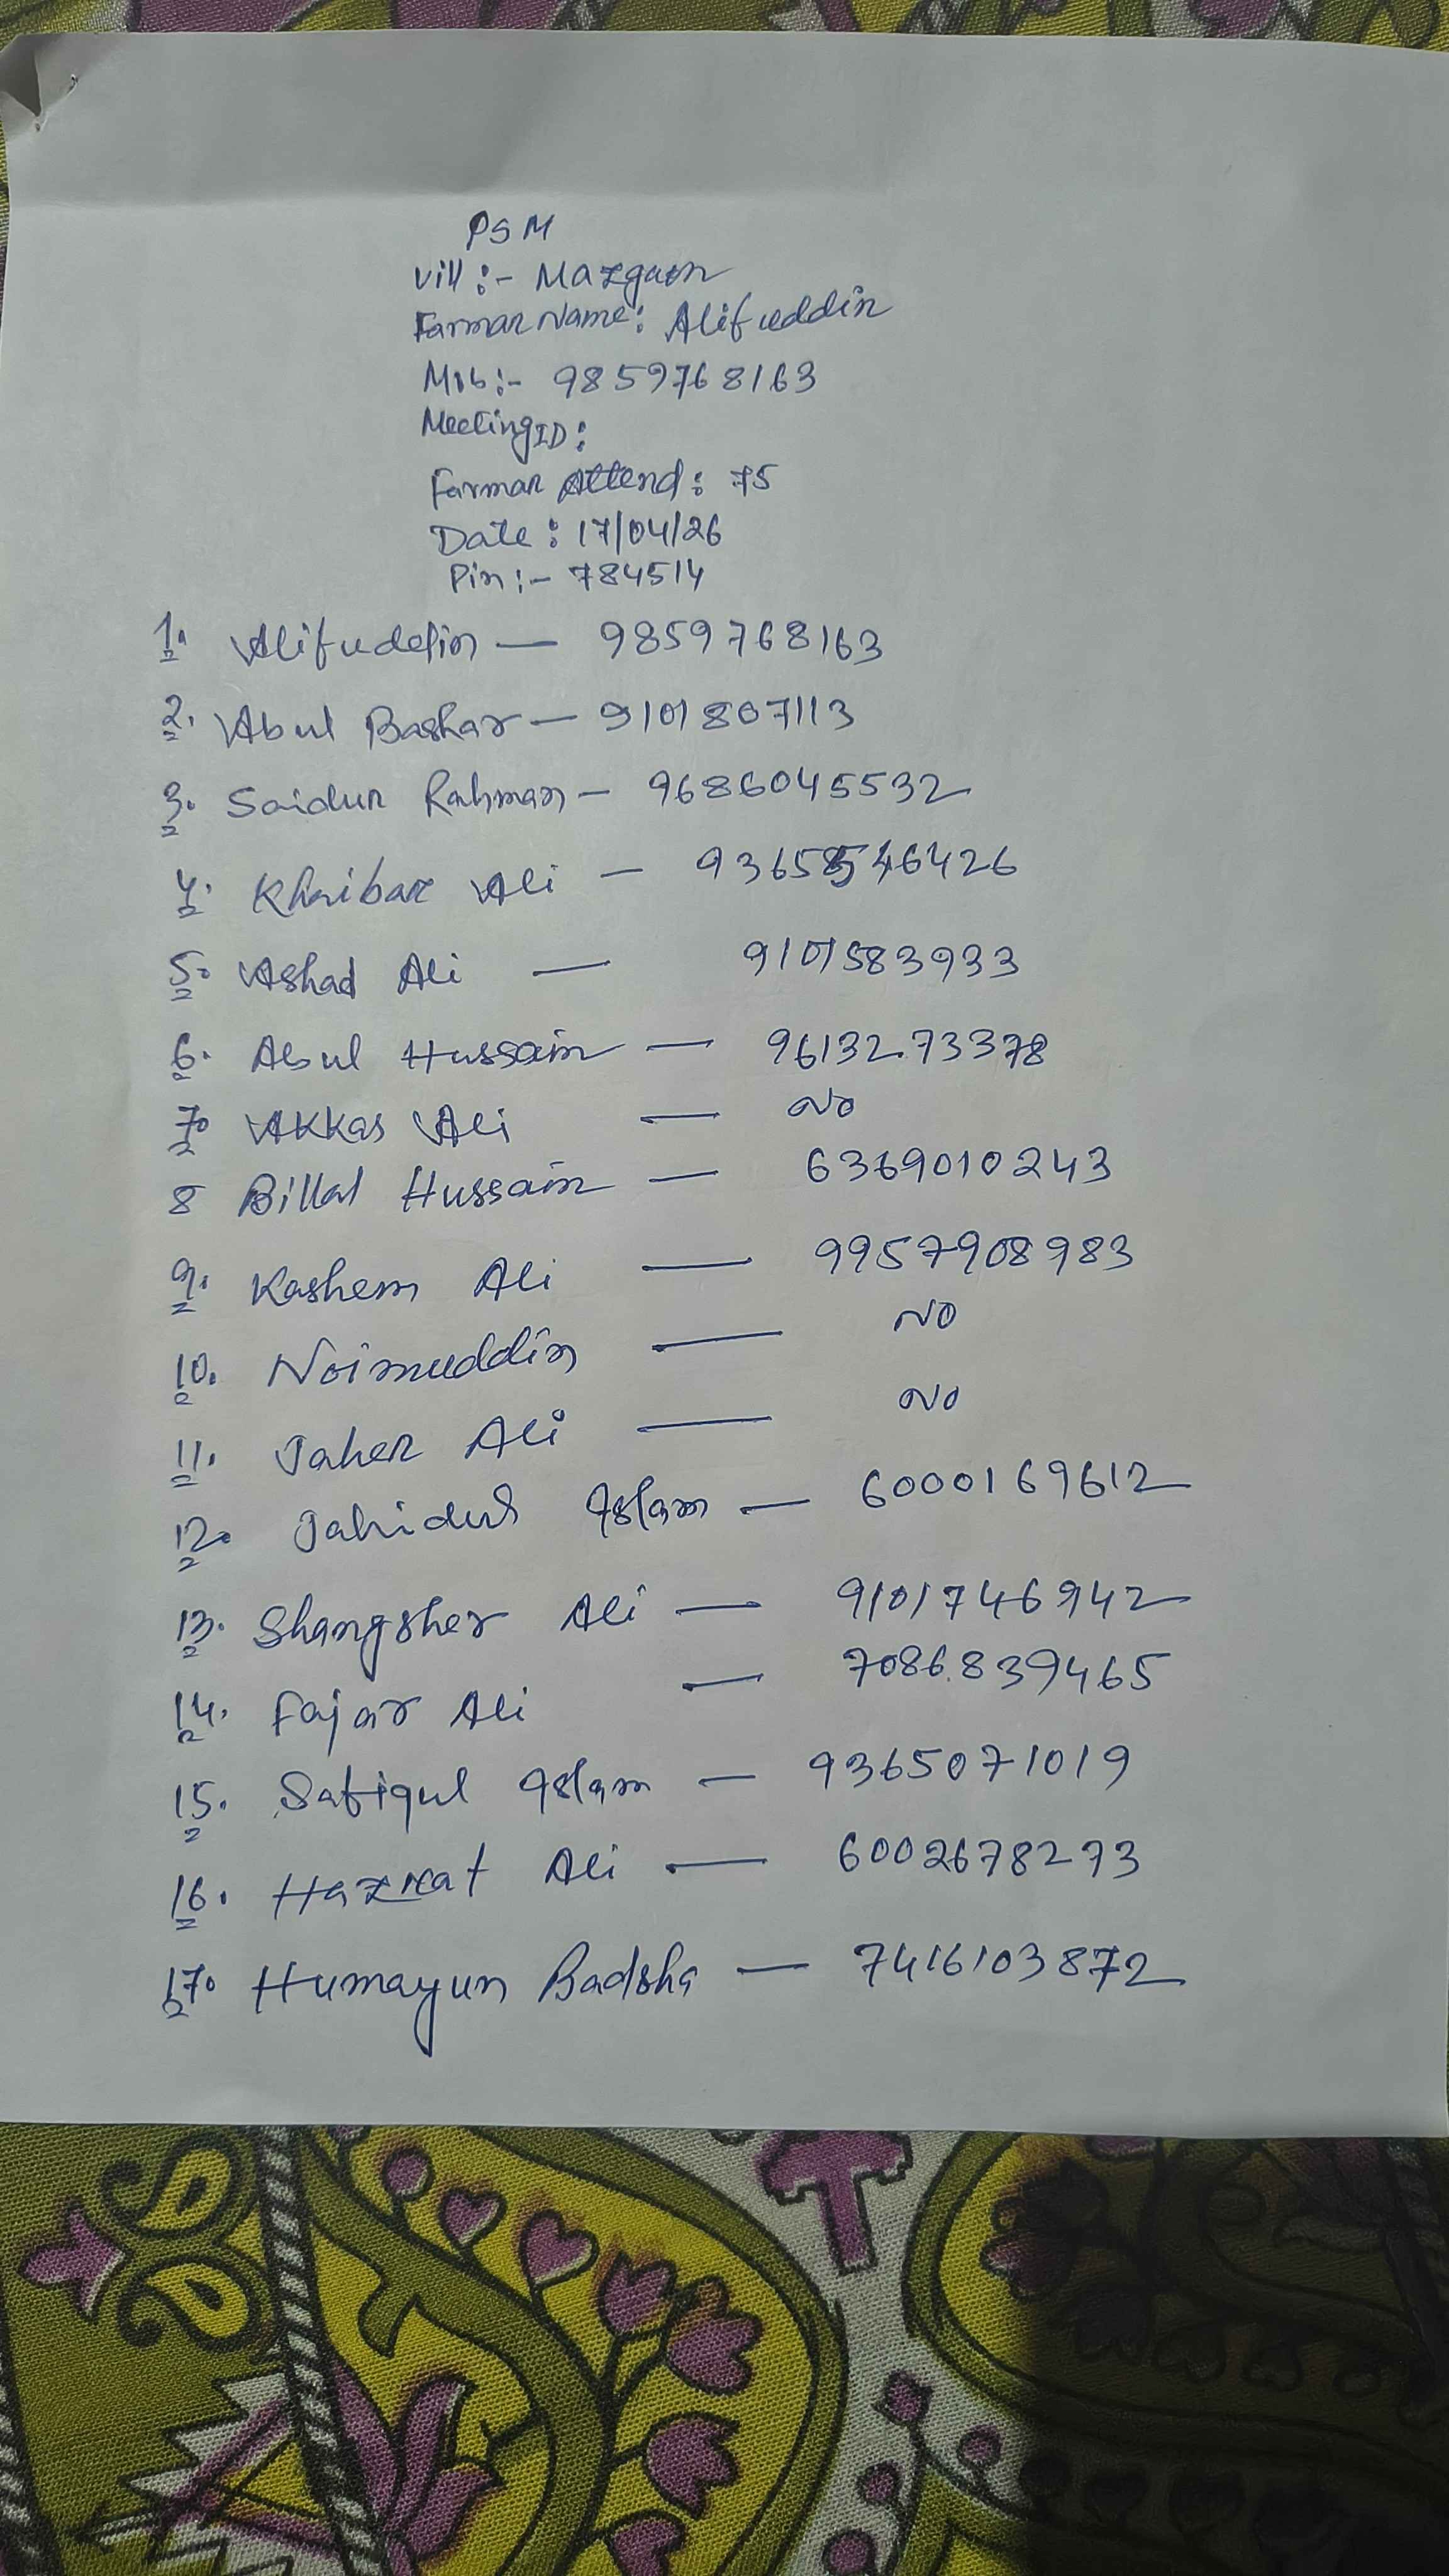 PSM
Vill :- Mazgaon
Farmar Name: Alifuddin
Mob:- 9859768163
Meeting ID :
Farmar Attend : 75
Date : 17/04/26
Pin :- 784514
1. Alifuddin — 9859768163
2. Abul Bashar — 9101807113
3. Saidur Rahman — 9686045532
4. Khaibar Ali —
5. Ashad Ali — 9101583933
6. Abul Hussain — 9613273378
7. Akkas Ali — No
8 Billal Hussain — 6369010243
9. Kashem Ali — 9957908983
10. Noimuddin — NO
11. Jaher Ali — NO
12. Jahidul Islam — 6000169612
13. Shangsher Ali — 9101746942
14. Fajar Ali — 7086839465
15. Safiqul Islam — 9365071019
16. Hazrat Ali — 6002678273
17. Humayun Badsha — 7416103872